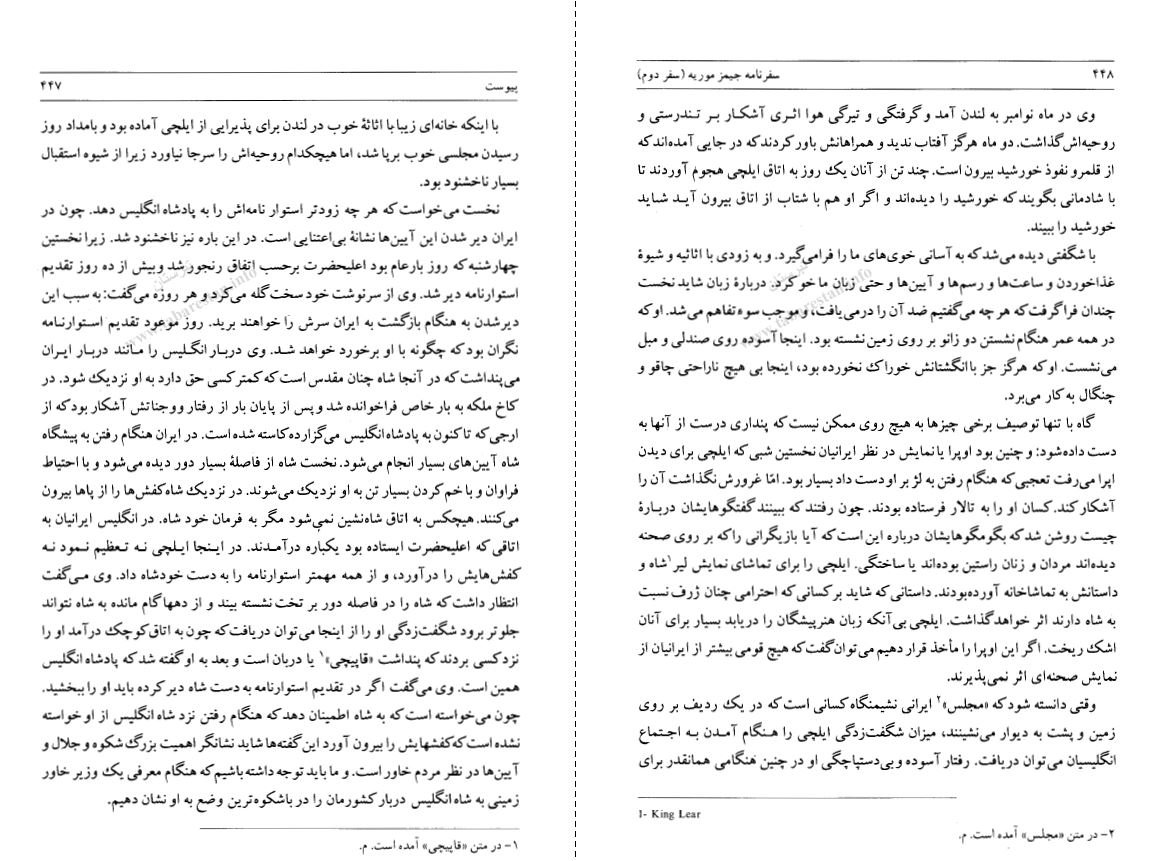 پیوست ۴۴۷
با اینکه خانه‌ای زیبا با اثاثهٔ خوب در لندن برای پذیرایی از ایلچی آماده بود و بامداد روز
رسیدن مجلسی خوب برپا شد، اما هیچکدام روحیه‌اش را سرجا نیاورد زیرا از شیوه استقبال
بسیار ناخشنود بود.
نخست می‌خواست که هر چه زودتر استوار نامه‌اش را به پادشاه انگلیس دهد. چون در
ایران دیر شدن این آیین‌ها نشانهٔ بی‌اعتنایی است. در این باره نیز ناخشنود شد. زیرا نخستین
چهارشنبه که روز بارعام بود اعلیحضرت برحسب اتفاق رنجور شد وبیش از ده روز تقدیم
استوارنامه دیر شد. وی از سرنوشت خود سخت گله می‌کرد و هر روزه می‌گفت: به سبب این
دیرشدن به هنگام بازگشت به ایران سرش را خواهند برید. روز موعود تقدیم استوارنـامه
نگران بود که چگونه با او برخورد خواهد شـد. وی دربـار انگـلیس را مـانند دربـار ایـران
می‌پنداشت که در آنجا شاه چنان مقدس است که کمتر کسی حق دارد به او نزدیک شود. در
کاخ ملکه به بار خاص فراخوانده شد و پس از پایان بار از رفتار ووجناتش آشکار بود که از
ارجی که تا کنون به پادشاه انگلیس می‌گزارده کاسته شده است. در ایران هنگام رفتن به پیشگاه
شاه آیین‌های بسیار انجام می‌شود. نخست شاه از فاصلهٔ بسیار دور دیده می‌شود و با احتیاط
فراوان و با خم کردن بسیار تن به او نزدیک می‌شوند. در نزدیک شاه کفش‌ها را از پاها بیرون
می‌کنند. هیچکس به اتاق شاه‌نشین نمی‌شود مگر به فرمان خود شاه. در انگلیس ایرانیان به
اتاقی که اعلیحضرت ایستاده بود یکباره درآمـدند. در ایـنجا ایـلچی نـه تـعظیم نمـود نـه
کفش‌هایش را درآورد، و از همه مهمتر استوارنامه را به دست خودشاه داد. وی مـی‌گفت
انتظار داشت که شاه را در فاصله دور بر تخت نشسته بیند و از دهها گام مانده به شاه نتواند
جلوتر برود شگفت‌زدگی او را از اینجا می‌توان دریافت که چون به اتاق کوچک درآمد او را
نزد کسی بردند که پنداشت «قاپیچی»۱ یا دربان است و بعد به او گفته شد که پادشاه انگلیس
همین است. وی می‌گفت اگر در تقدیم استوارنامه به دست شاه دیر کرده باید او را ببخشید.
چون می‌خواسته است که به شاه اطمینان دهد که هنگام رفتن نزد شاه انگلیس از او خواسته
نشده است که کفشهایش را بیرون آورد این گفته‌ها شاید نشانگر اهمیت بزرگ شکوه و جلال و
آیین‌ها در نظر مردم خاور است. و ما باید توجه داشته باشیم که هنگام معرفی یک وزیر خاور
زمینی به شاه انگلیس دربار کشورمان را در باشکوه‌ترین وضع به او نشان دهیم.
۱- در متن «قاپیچی» آمده است. م.
تبرستان
www.tabarestan.info
۴۴۸ سفرنامه جیمز موریه (سفر دوم)
وی در ماه نوامبر به لندن آمد و گرفتگی و تیرگی هوا اثـری آشکـار بـر تـندرستی و
روحیه‌اش گذاشت. دو ماه هرگز آفتاب ندید و همراهانش باور کردند که در جایی آمده‌اند که
از قلمرو نفوذ خورشید بیرون است. چند تن از آنان یک روز به اتاق ایلچی هجوم آوردند تا
با شادمانی بگویند که خورشید را دیده‌اند و اگر او هم با شتاب از اتاق بیرون آیـد شـاید
خورشید را ببیند.
با شگفتی دیده می‌شد که به آسانی خوی‌های ما را فرامی‌گیرد. و به زودی با اثاثیه و شیوهٔ
غذاخوردن و ساعت‌ها و رسم‌ها و آیین‌ها و حتی زبان ما خو کرد. دربارهٔ زبان شاید نخست
چندان فراگرفت که هر چه می‌گفتیم ضد آن را درمی‌یافت، و موجب سوء‌تفاهم می‌شد. او که
در همه عمر هنگام نشستن دو زانو بر روی زمین نشسته بود. اینجا آسوده روی صندلی و مبل
می‌نشست. او که هرگز جز با انگشتانش خوراک نخورده بود، اینجا بی هیچ ناراحتی چاقو و
چنگال به کار می‌برد.
گاه با تنها توصیف برخی چیزها به هیچ روی ممکن نیست که پنداری درست از آنها به
دست داده‌شود: و چنین بود اوپرا یا نمایش در نظر ایرانیان نخستین شبی که ایلچی برای دیدن
اپرا می‌رفت تعجبی که هنگام رفتن به لژ بر او دست داد بسیار بود. امّا غرورش نگذاشت آن را
آشکار کند. کسان او را به تالار فرستاده بودند. چون رفتند که ببینند گفتگوهایشان دربـارهٔ
چیست روشن شد که بگومگوهایشان درباره این است که آیا بازیگرانی را که بر روی صحنه
دیده‌اند مردان و زنان راستین بوده‌اند یا ساختگی. ایلچی را برای تماشای نمایش لیر۱ شاه و
داستانش به تماشاخانه آورده‌بودند. داستانی که شاید بر کسانی که احترامی چنان ژرف نسبت
به شاه دارند اثر خواهدگذاشت. ایلچی بی‌آنکه زبان هنرپیشگان را دریابد بسیار برای آنان
اشک ریخت. اگر این اوپرا را مأخذ قرار دهیم می‌توان گفت که هیچ قومی بیشتر از ایرانیان از
نمایش صحنه‌ای اثر نمی‌پذیرند.
وقتی دانسته شود که «مجلس»۲ ایرانی نشیمنگاه کسانی است که در یک ردیف بر روی
زمین و پشت به دیوار می‌نشینند، میزان شگفت‌زدگی ایلچی را هـنگام آمـدن بـه اجـتماع
انگلیسیان می‌توان دریافت. رفتار آسوده و بی‌دستپاچگی او در چنین هنگامی همانقدر برای
1- King Lear
۲- در متن «مجلس» آمده است. م.
www.tabarestan.info